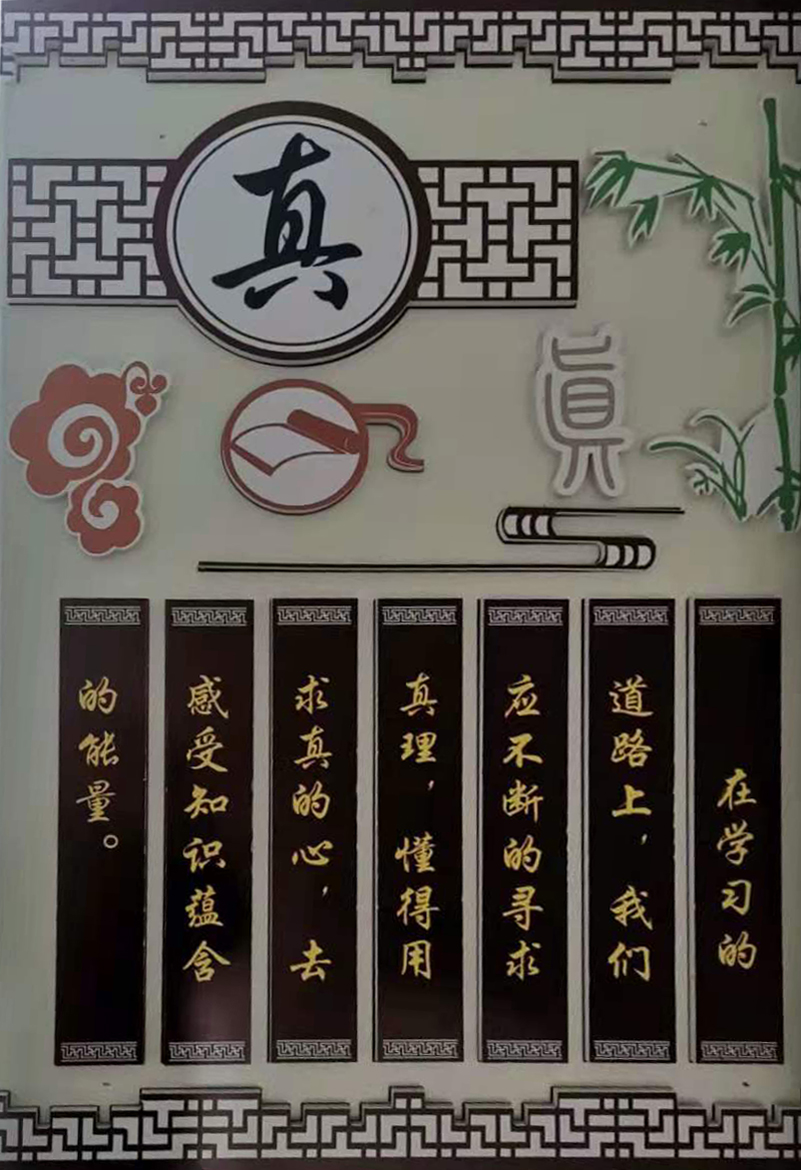 真
眞
在学习的
道路上，我们
应不断的寻求
真理，懂得用
求真的心，去
感受知识蕴含
的能量。